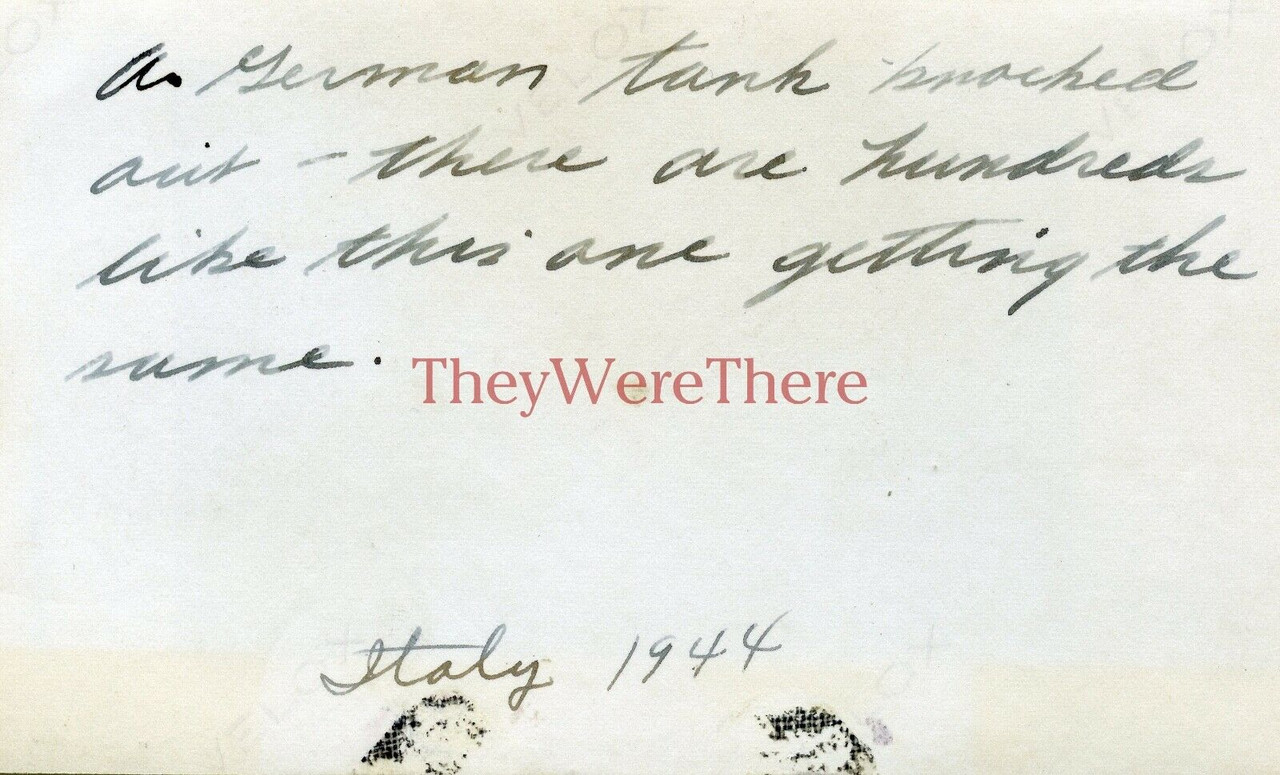 A German tank knocked
out - there are hundreds
like this one getting the
same.
TheyWereThere
Italy 1944